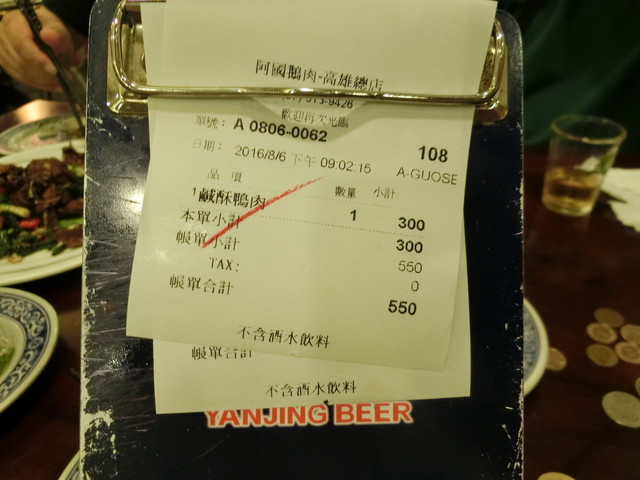 阿國鵝肉-高雄總店
513-9426
歡迎再次光臨
單號: A 0806-0062
108
日期: 2016/8/6 下午 09:02:15 A-GUOSE
品 項 數量 小計
1鹹酥鴨肉 1 300
本單小計 300
帳單小計 550
TAX: 0
帳單合計 550
不含酒水飲料
帳單合計
不含酒水飲料
YANJING BEER